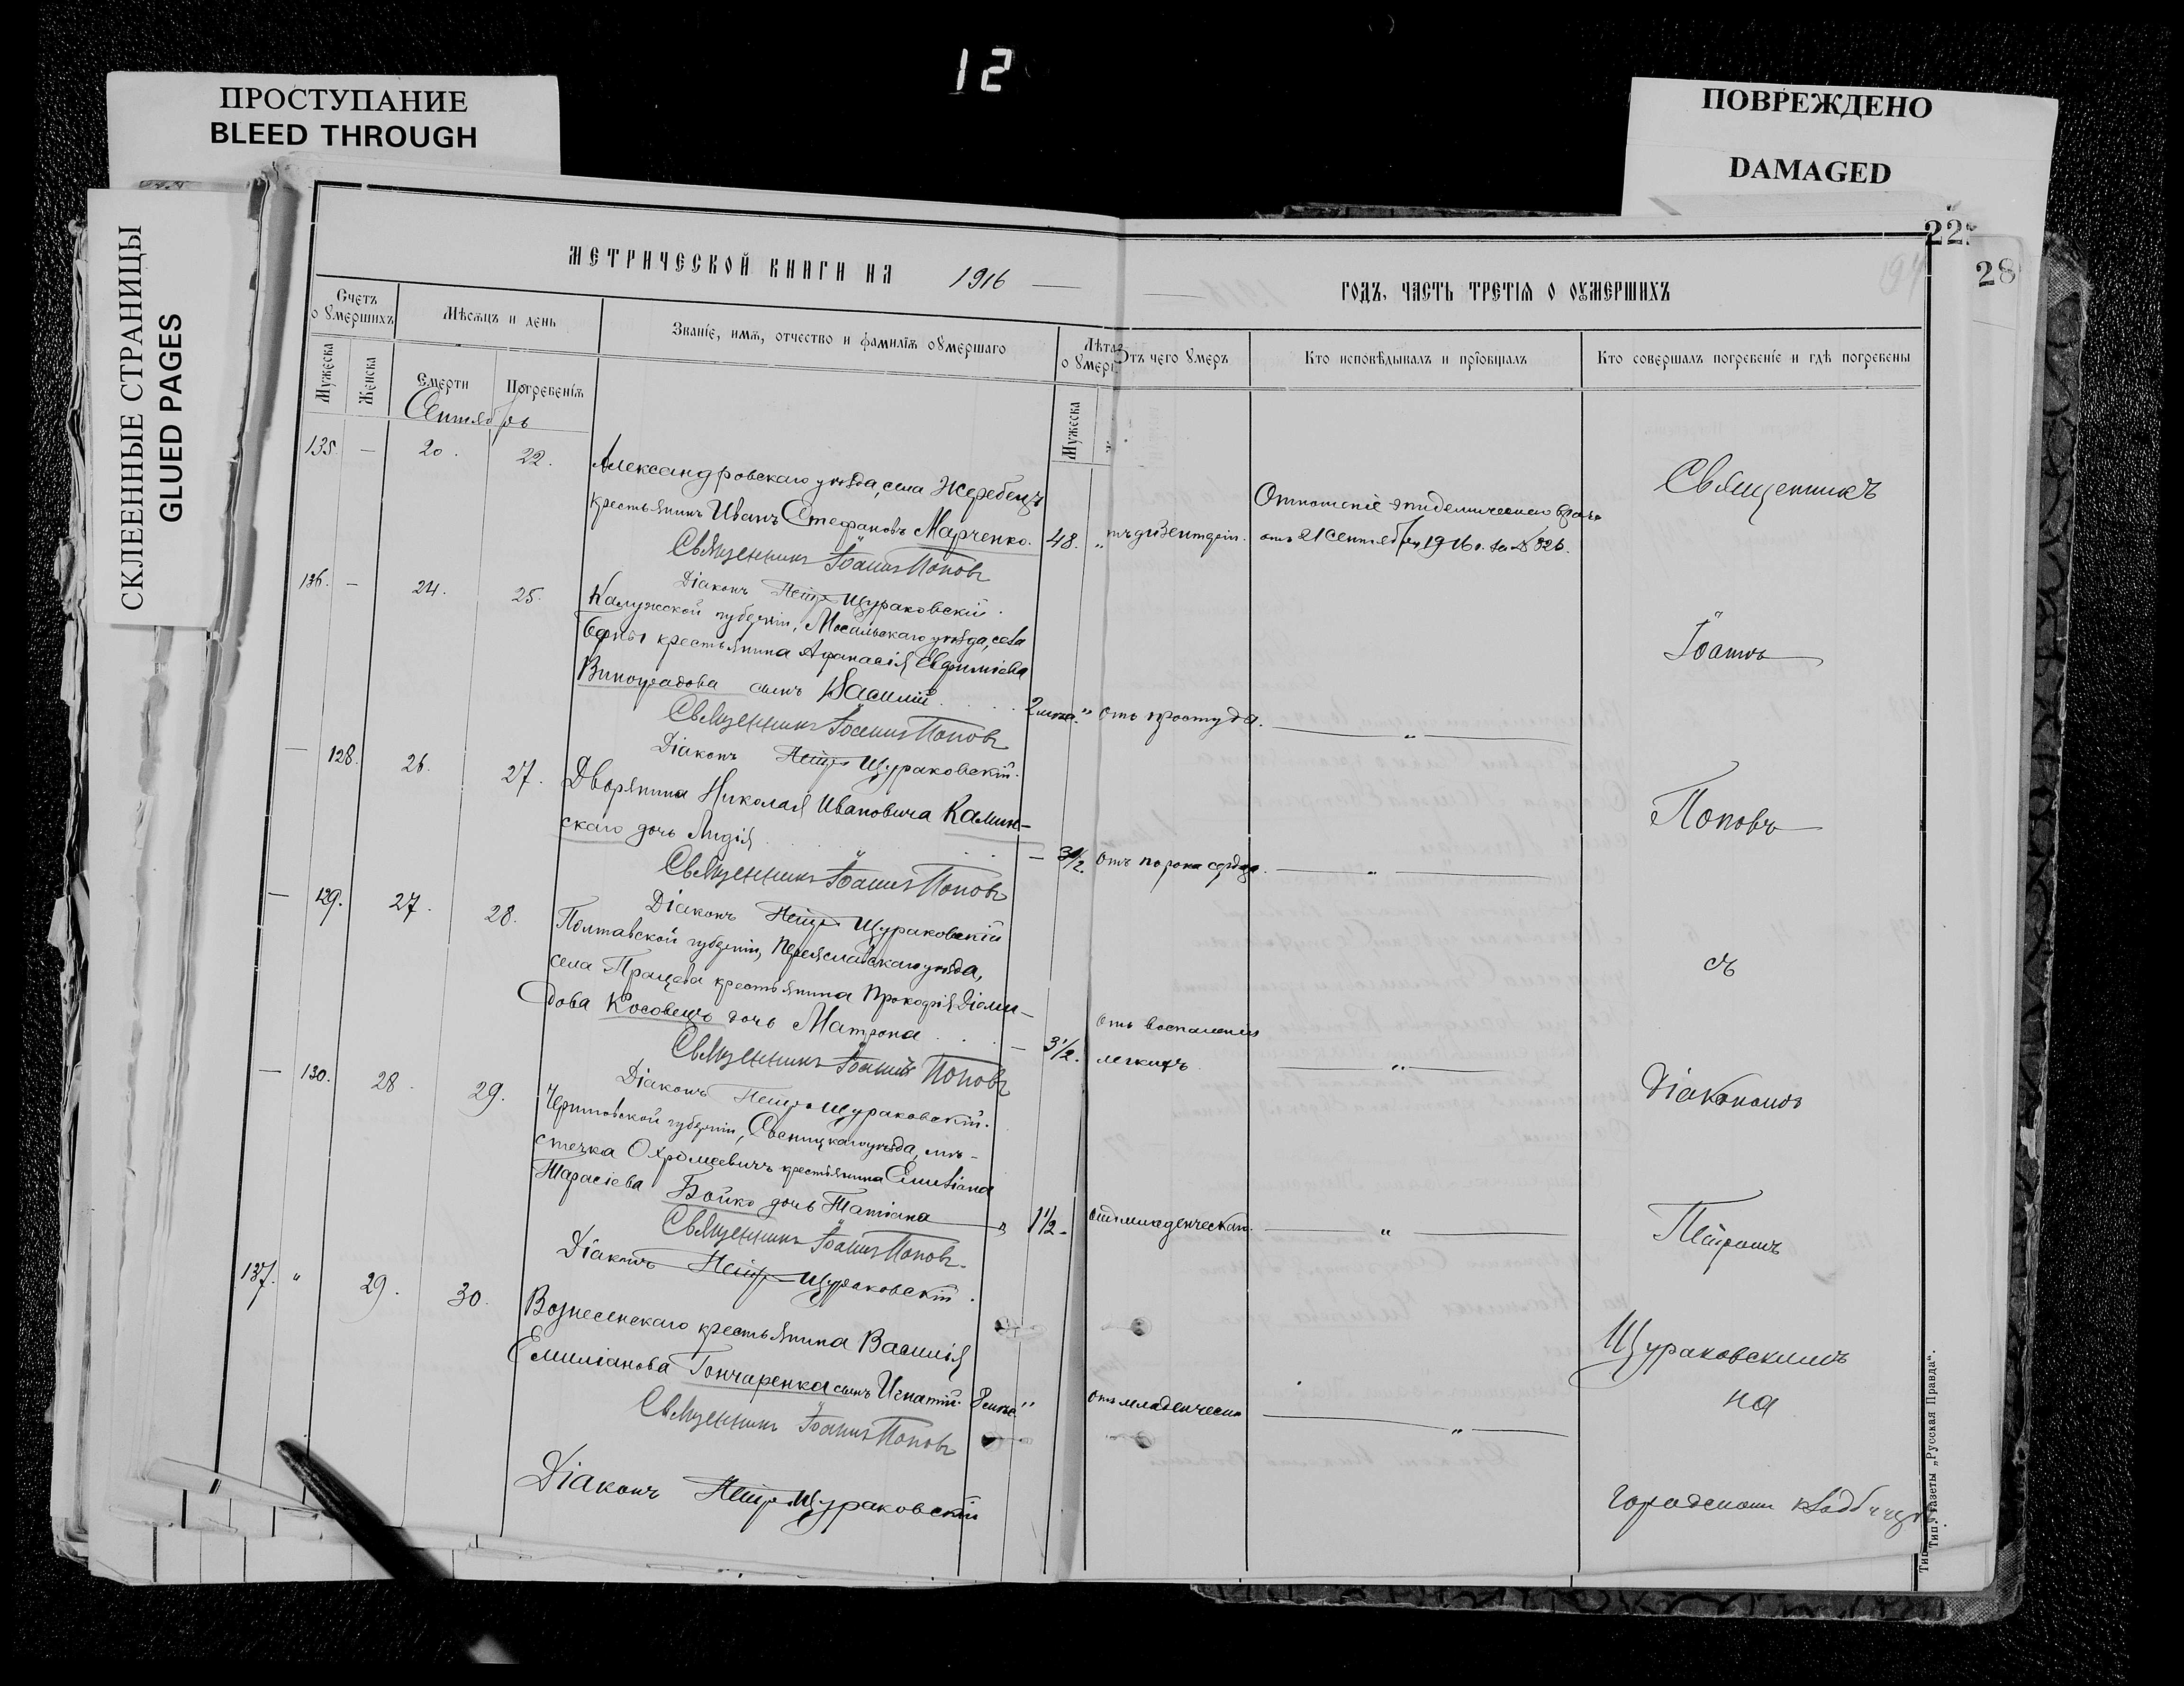 12
ПРОСТУПАНИЕ
BLEED THROUGH
ПОВРЕЖДЕНО
DAMAGED
СКЛЕЕННЫЕ СТРАНИЦЫ
GLUED PAGES
22
28
194
МЕТРИЧЕСКОЙ КНИГИ НА 1916
ГОДЪ, ЧАСТЬ ТРЕТІЯ О ОУМЕРШИХЪ
Счетъ о умершихъ
Мѣсяцъ и день
Званіе, имя, отчество и фамилія оумершаго
Лѣта
о умер
Отъ чего умеръ
Кто исповѣдывалъ и пріобщалъ
Кто совершалъ погребеніе и гдѣ погребены
Мужеска
Женска
Смерти
Погребенія
Мужеска
Сентябрь
135. — 20. 22. Александровскаго уѣзда, села Жеребецъ
крестьянинъ Иванъ Стефановъ Марченко. 48. " отъ дизентеріи. Отношеніе эпидемическаго врача
отъ 21 Сентября 1916 г. за № 826.
Священникъ Іоаннъ Поповъ
Діаконъ Петръ Щураковскій.
136. — 24. 25. Калужской губерніи, Мосальскаго уѣзда, села
крестьянина Аѳанасія Евфиміева
Виноградова сынъ Василій 2 " отъ простуды. — " —
Священникъ Іоаннъ Поповъ
Діаконъ Петръ Щураковскій.
— 128. 26. 27. Дворянина Николая Ивановича Камин-
скаго дочь Лидія — 3 1/2. отъ порока сердца. — " —
Священникъ Іоаннъ Поповъ
Діаконъ Петръ Щураковскій
— 129. 27. 28. Полтавской губерніи, Переяславскаго уѣзда,
села Працева крестьянина Прокофія Діоми-
дова Косовецъ дочь Матрона — 3 1/2. отъ воспаленія
легкихъ — " —
Священникъ Іоаннъ Поповъ
Діаконъ Петръ Щураковскій.
— 130. 28. 29. Черниговской губерніи, уѣзда, мѣ-
стечка крестьянина Емиліана
Тарасіева Бойко дочь Татіана " 1 1/2. отъ младенческой. — " —
Священникъ Іоаннъ Поповъ.
Діаконъ Петръ Щураковскій.
137. " 29. 30. Вознесенскаго крестьянина Василія
Емиліанова Гончаренка сынъ Игнатій 8 " отъ младенческ. — " —
Священникъ Іоаннъ Поповъ
Діаконъ Петръ Щураковскій
Священникъ
Іоаннъ
Поповъ
съ
Діакономъ
Петромъ
Щураковскимъ
на
городскомъ кладбищѣ
Тип. газеты „Русская Правда".